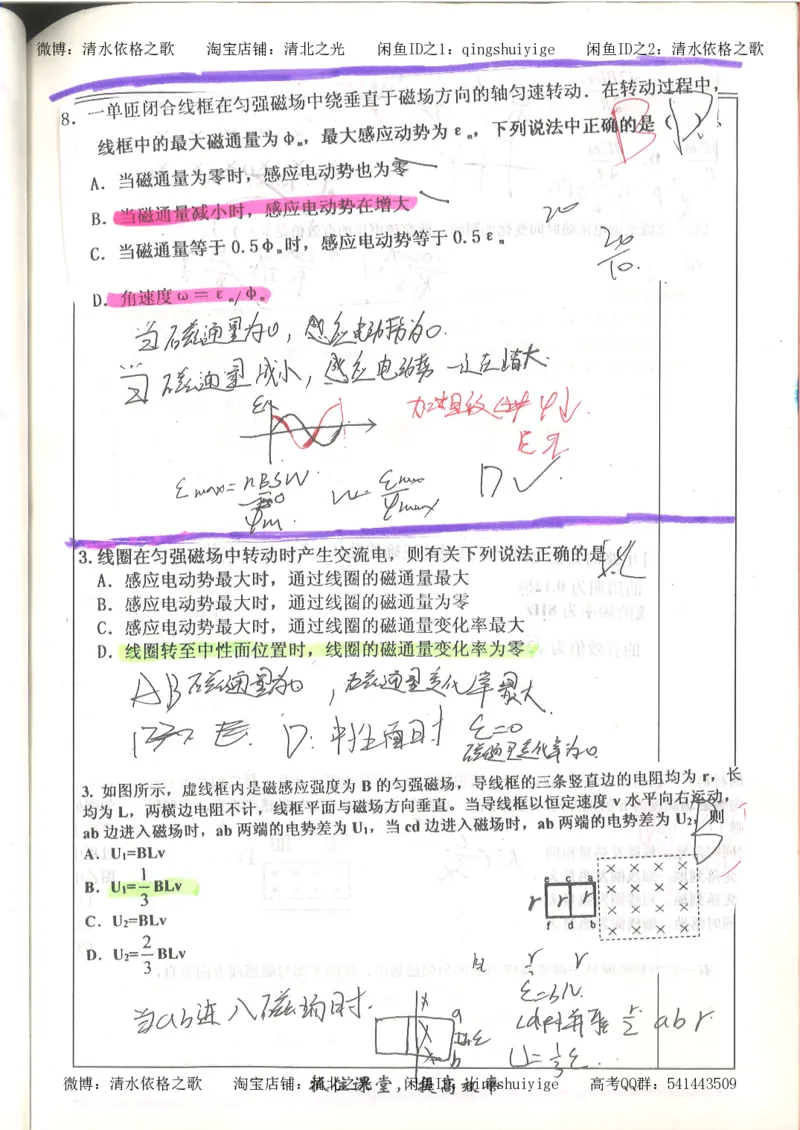 微博：清水依格之歌 淘宝店铺：清北之光 闲鱼ID之1：qingshuiyige 闲鱼ID之2：清水依格之歌
8．一单匝闭合线框在匀强磁场中绕垂直于磁场方向的轴匀速转动．在转动过程中，
线框中的最大磁通量为Φm，最大感应动势为εm，下列说法中正确的是（D）
B
A．当磁通量为零时，感应电动势也为零
B．当磁通量减小时，感应电动势在增大
C．当磁通量等于0.5Φm时，感应电动势等于0.5εm
D．角速度ω＝εm/Φm
20
20
10.
当磁通量为0，感应电动势为0.
当磁通量减小，感应电动势一直在增大.
εmax=nBSW
φm.
W=εmax/φmax
D✓.
3.线圈在匀强磁场中转动时产生交流电，则有关下列说法正确的是
A．感应电动势最大时，通过线圈的磁通量最大
B．感应电动势最大时，通过线圈的磁通量为零
C．感应电动势最大时，通过线圈的磁通量变化率最大
D．线圈转至中性面位置时，线圈的磁通量变化率为零
AB磁通量为0，磁通量变化率最大
D：中性面时 ε=0
磁通量变化率为0
3. 如图所示，虚线框内是磁感应强度为B的匀强磁场，导线框的三条竖直边的电阻均为r，长
均为L，两横边电阻不计，线框平面与磁场方向垂直。当导线框以恒定速度v水平向右运动，
ab边进入磁场时，ab两端的电势差为U1，当cd边进入磁场时，ab两端的电势差为U2，则
B
A．U1=BLv
B．U1=1/3 BLv
C．U2=BLv
D．U2=2/3 BLv
e c a
r r r
f d b
r r
当ab进入磁场时.
a
b
ε=BLV.
r/2 ab r
U=1/3 ε
微博：清水依格之歌 淘宝店铺：清北之光 闲鱼ID：qingshuiyige 高考QQ群：541443509
抓住课堂，提高效率